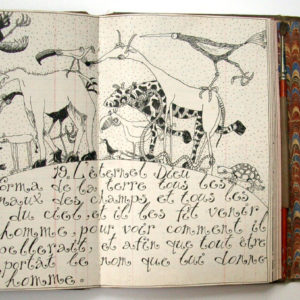 19. L'éternel Dieu
forma de la terre tous les
maux des champs et tous les
du ciel et il les fit venir
homme, pour voir comment il
pellerait, et afin que tout être
portât le nom que lui donne
homme.